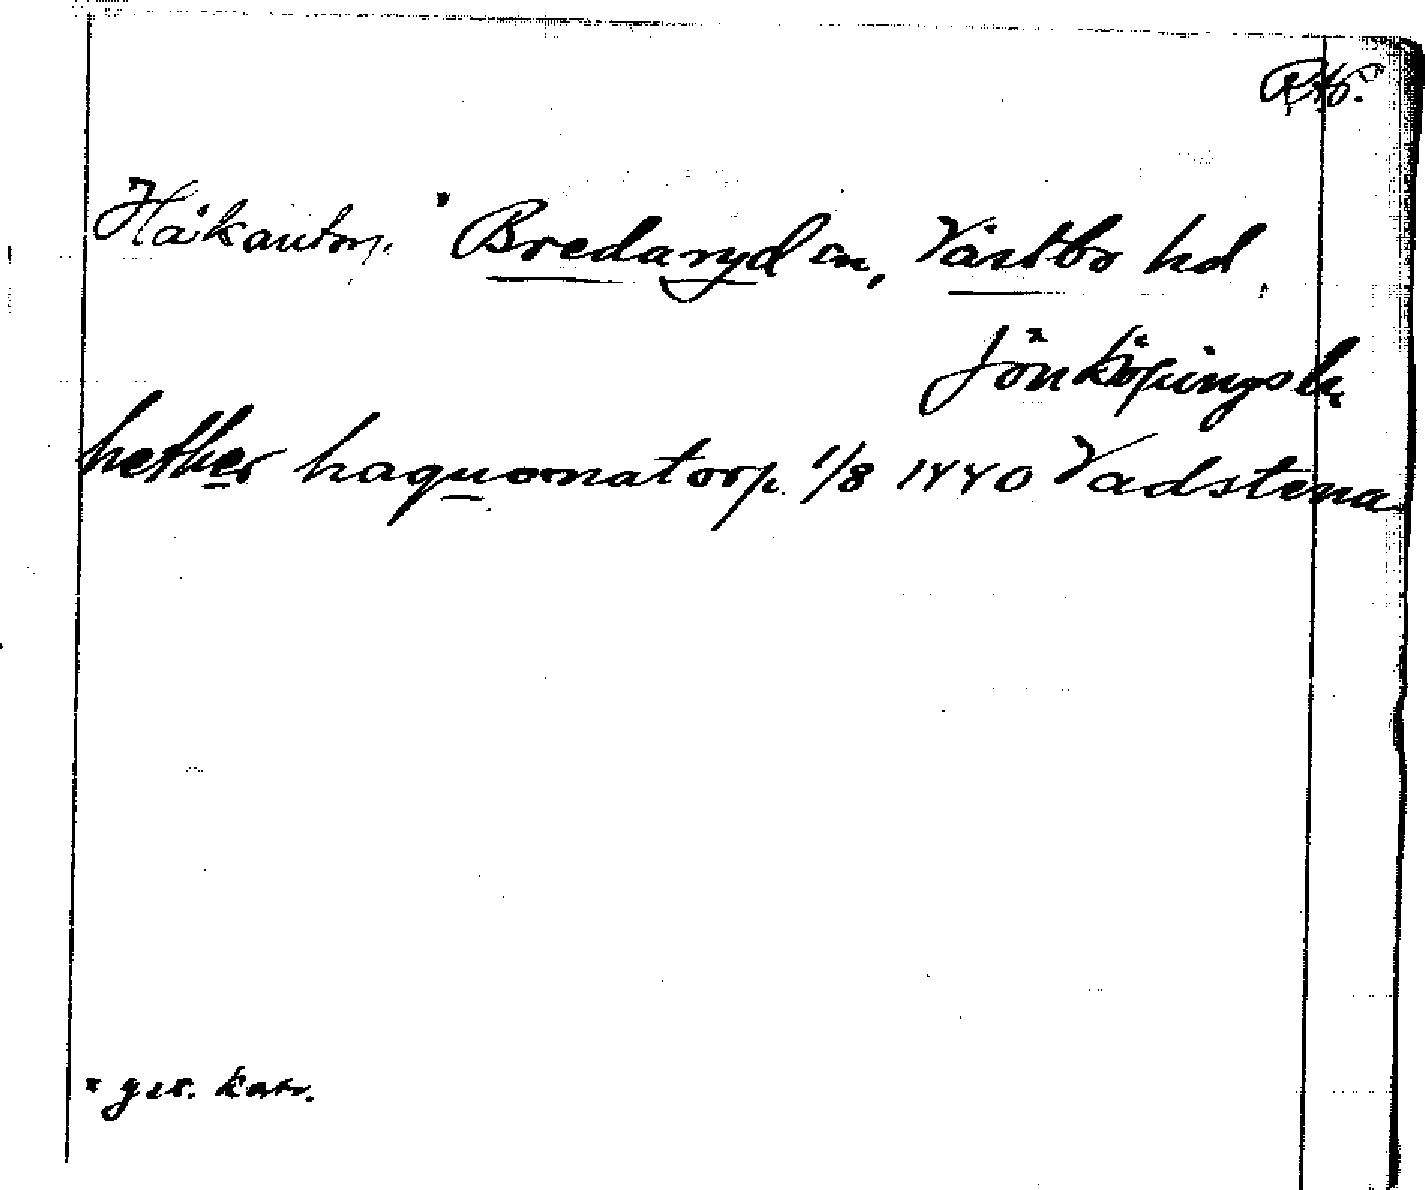 Håkantorp * Bredaryd sn, Västbo hd,
Jönköpings l.
hether haquonatorp 1/8 1440 Vadstena
* gen. kart.